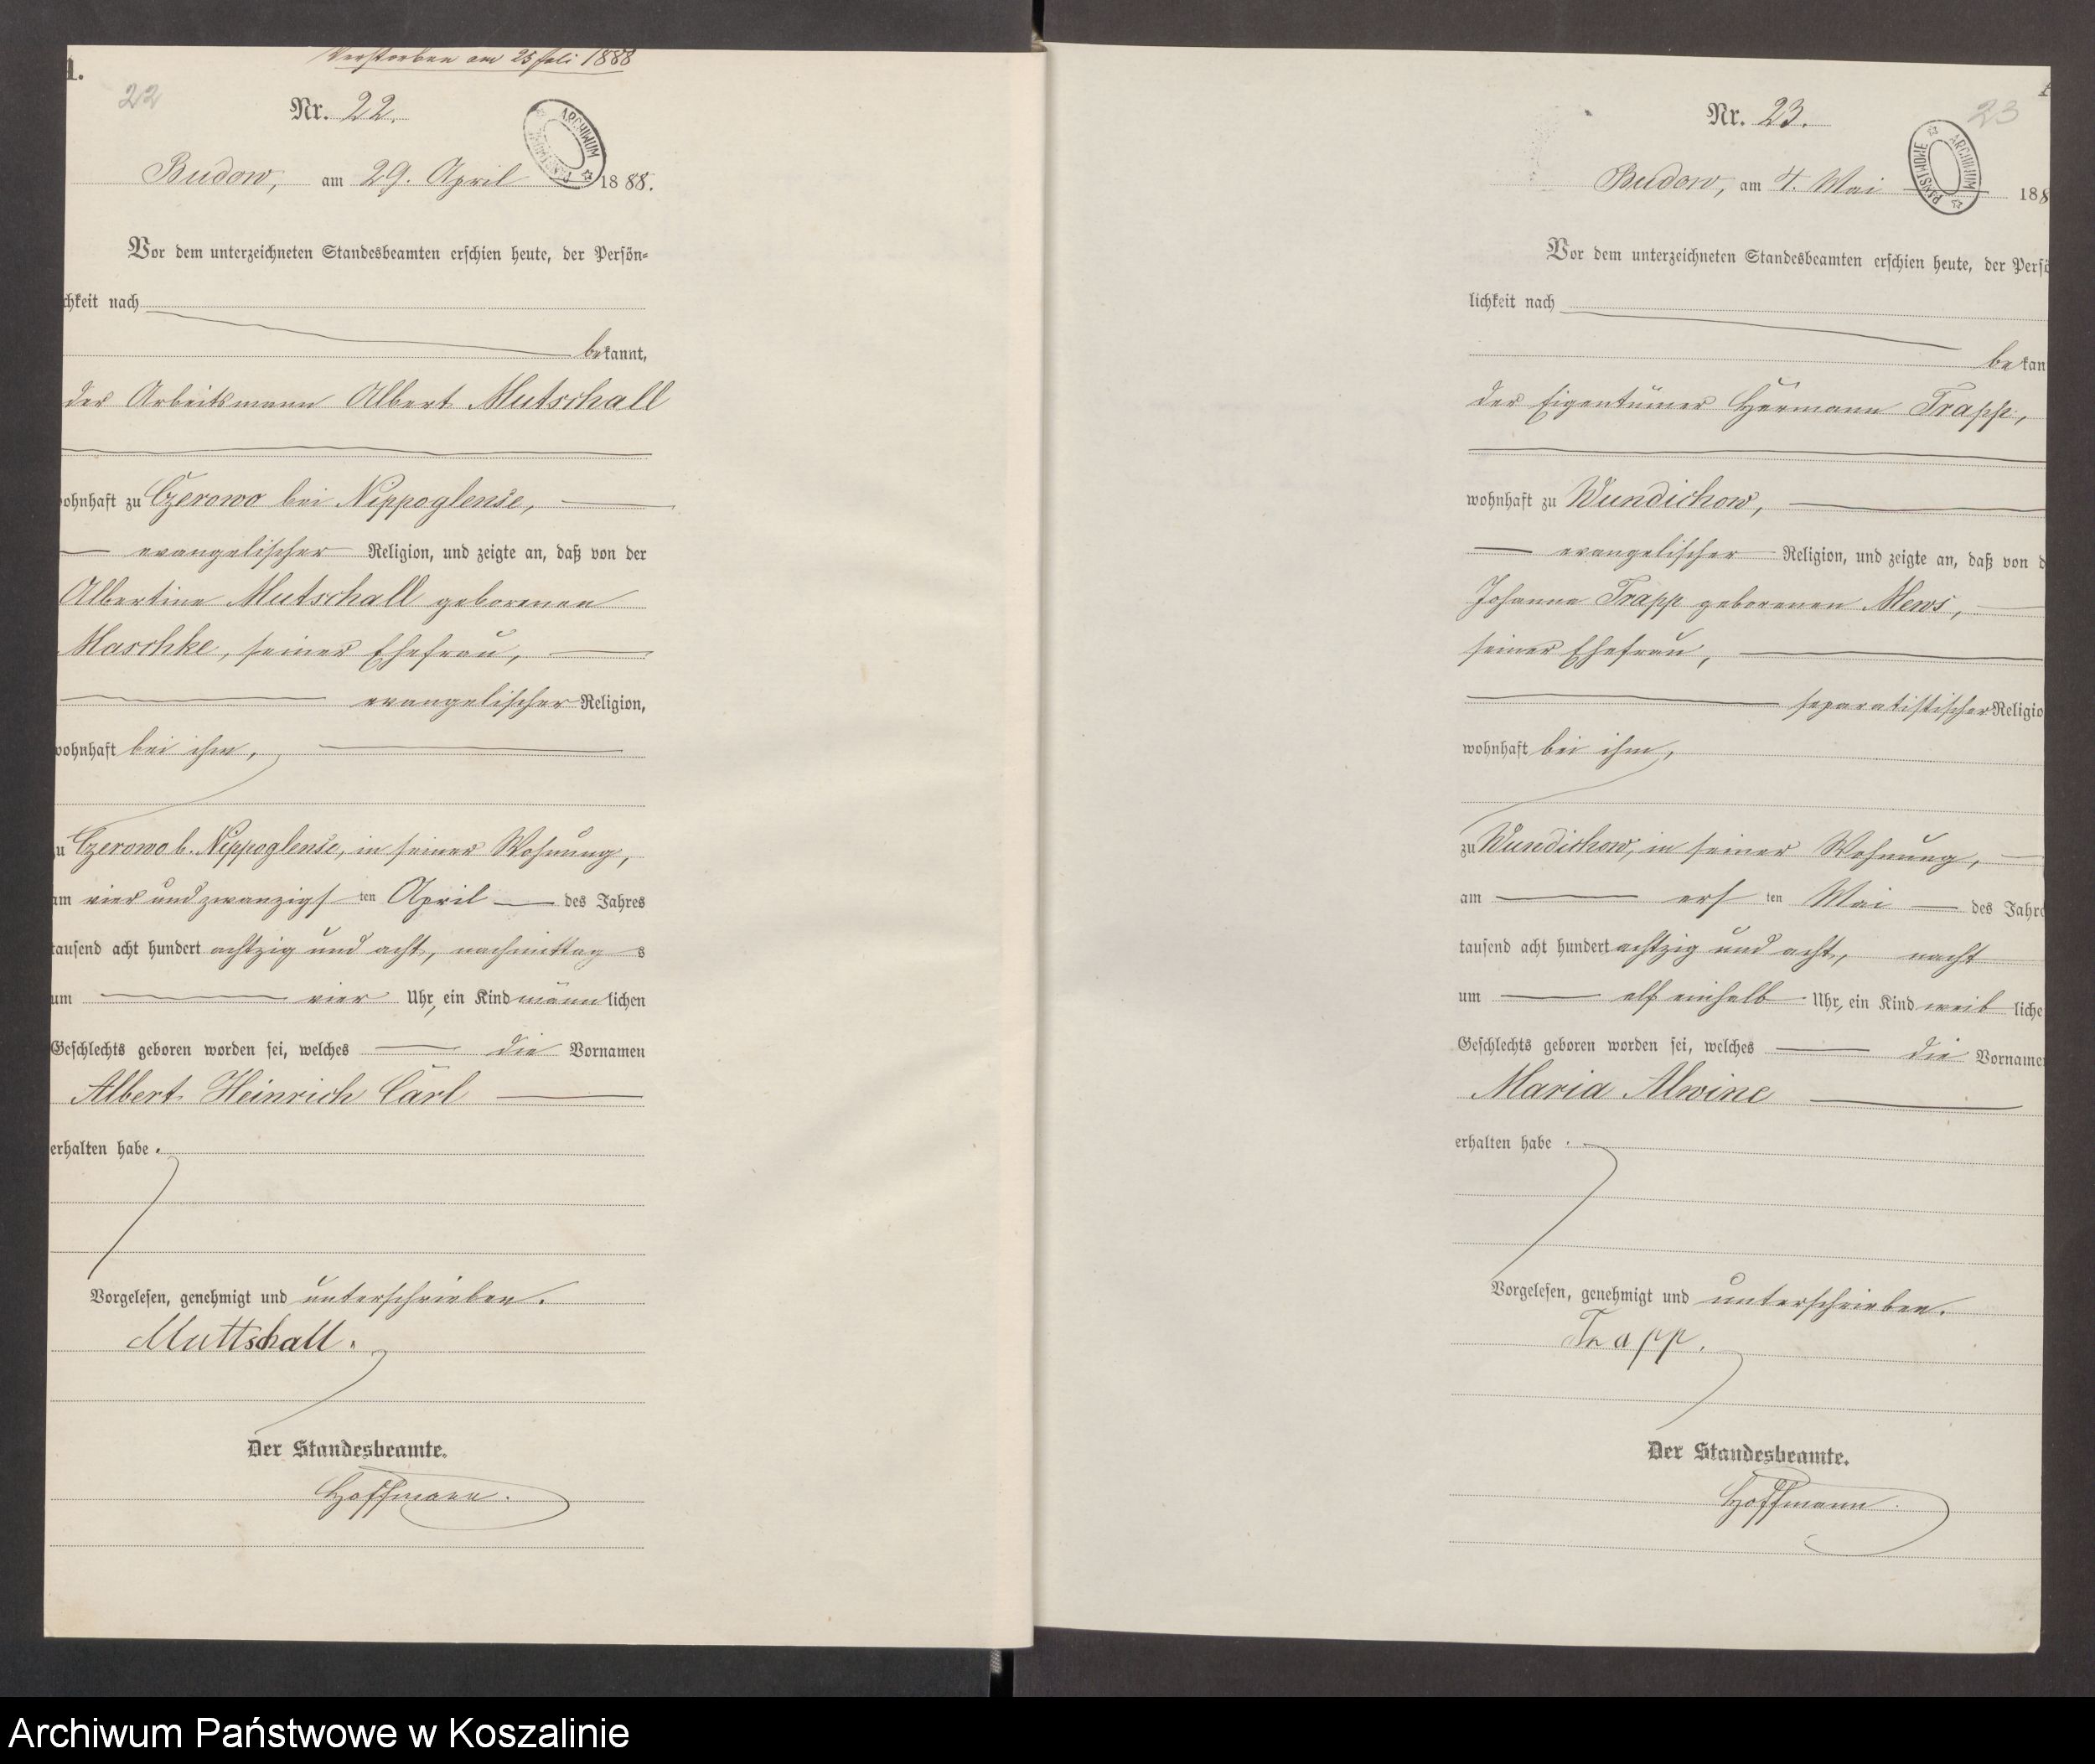 1.
Verstorben am 25 Juli 1888
22
Nr. 22.
ARCHIWUM PAŃSTWOWE
Budow, am 29. April 1888.
Vor dem unterzeichneten Standesbeamten erschien heute, der Persön-
chkeit nach
bekannt,
der Arbeitsmann Albert Mutschall
ohnhaft zu Czerowo bei Nippoglense,
evangelischer Religion, und zeigte an, daß von der
Albertine Mutschall geborenen
Maschke, seiner Ehefrau,
evangelischer Religion,
wohnhaft bei ihm,
zu Czerowo b. Nippoglense, in seiner Wohnung,
am vier und zwanzigsten April des Jahres
tausend acht hundert achtzig und acht, nachmittags
um vier Uhr, ein Kind männlichen
Geschlechts geboren worden sei, welches die Vornamen
Albert Heinrich Carl
erhalten habe.
Vorgelesen, genehmigt und unterschrieben.
Muttschall.
Der Standesbeamte.
Hoffmann.
23
Nr. 23.
ARCHIWUM PAŃSTWOWE
Budow, am 4. Mai 188
Vor dem unterzeichneten Standesbeamten erschien heute, der Persö
lichkeit nach
bekan
der Eigentümer Hermann Trapp,
wohnhaft zu Wundichow,
evangelischer Religion, und zeigte an, daß von d
Johanna Trapp geborenen Mews,
seiner Ehefrau,
separatistischer Religio
wohnhaft bei ihm,
zu Wundichow, in seiner Wohnung,
am ersten Mai des Jahre
tausend acht hundert achtzig und acht, nacht
um elf einhalb Uhr, ein Kind weibliche
Geschlechts geboren worden sei, welches die Vorname
Maria Alwine
erhalten habe.
Vorgelesen, genehmigt und unterschrieben.
Trapp.
Der Standesbeamte.
Hoffmann.
Archiwum Państwowe w Koszalinie